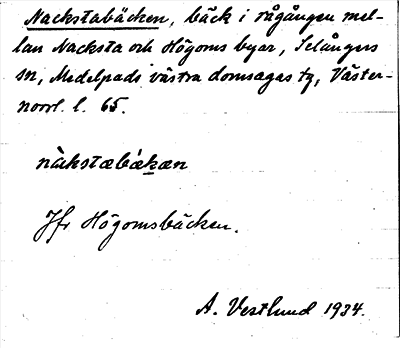 Nackstabäcken, bäck i rågången mel-
lan Nacksta och Högoms byar, Selångers
sn, Medelpads västra domsagas tg, Väster-
norrl. l. 65.
nàkstæbἀkæn
Jfr Högomsbäcken.
A. Vestlund 1934.